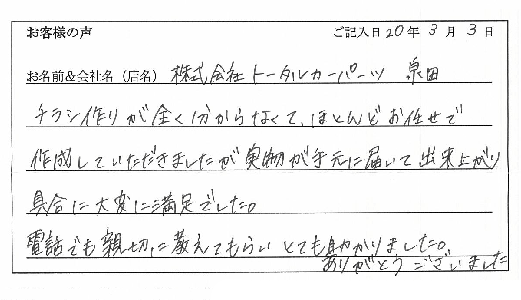 お客様の声 ご記入日 20年 3月 3日
お名前&会社名(店名) 株式会社トータルカーパーツ 泉田
チラシ作りが全く分からなくて、ほとんどお任せで
作成していただきましたが実物が手元に届いて出来上がり
具合に大変に満足でした。
電話でも親切に教えてもらいとても助かりました。
ありがとうございました